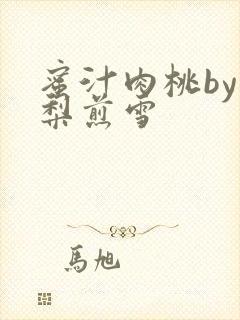 蜜汁肉桃by
梨煎雪
馬旭